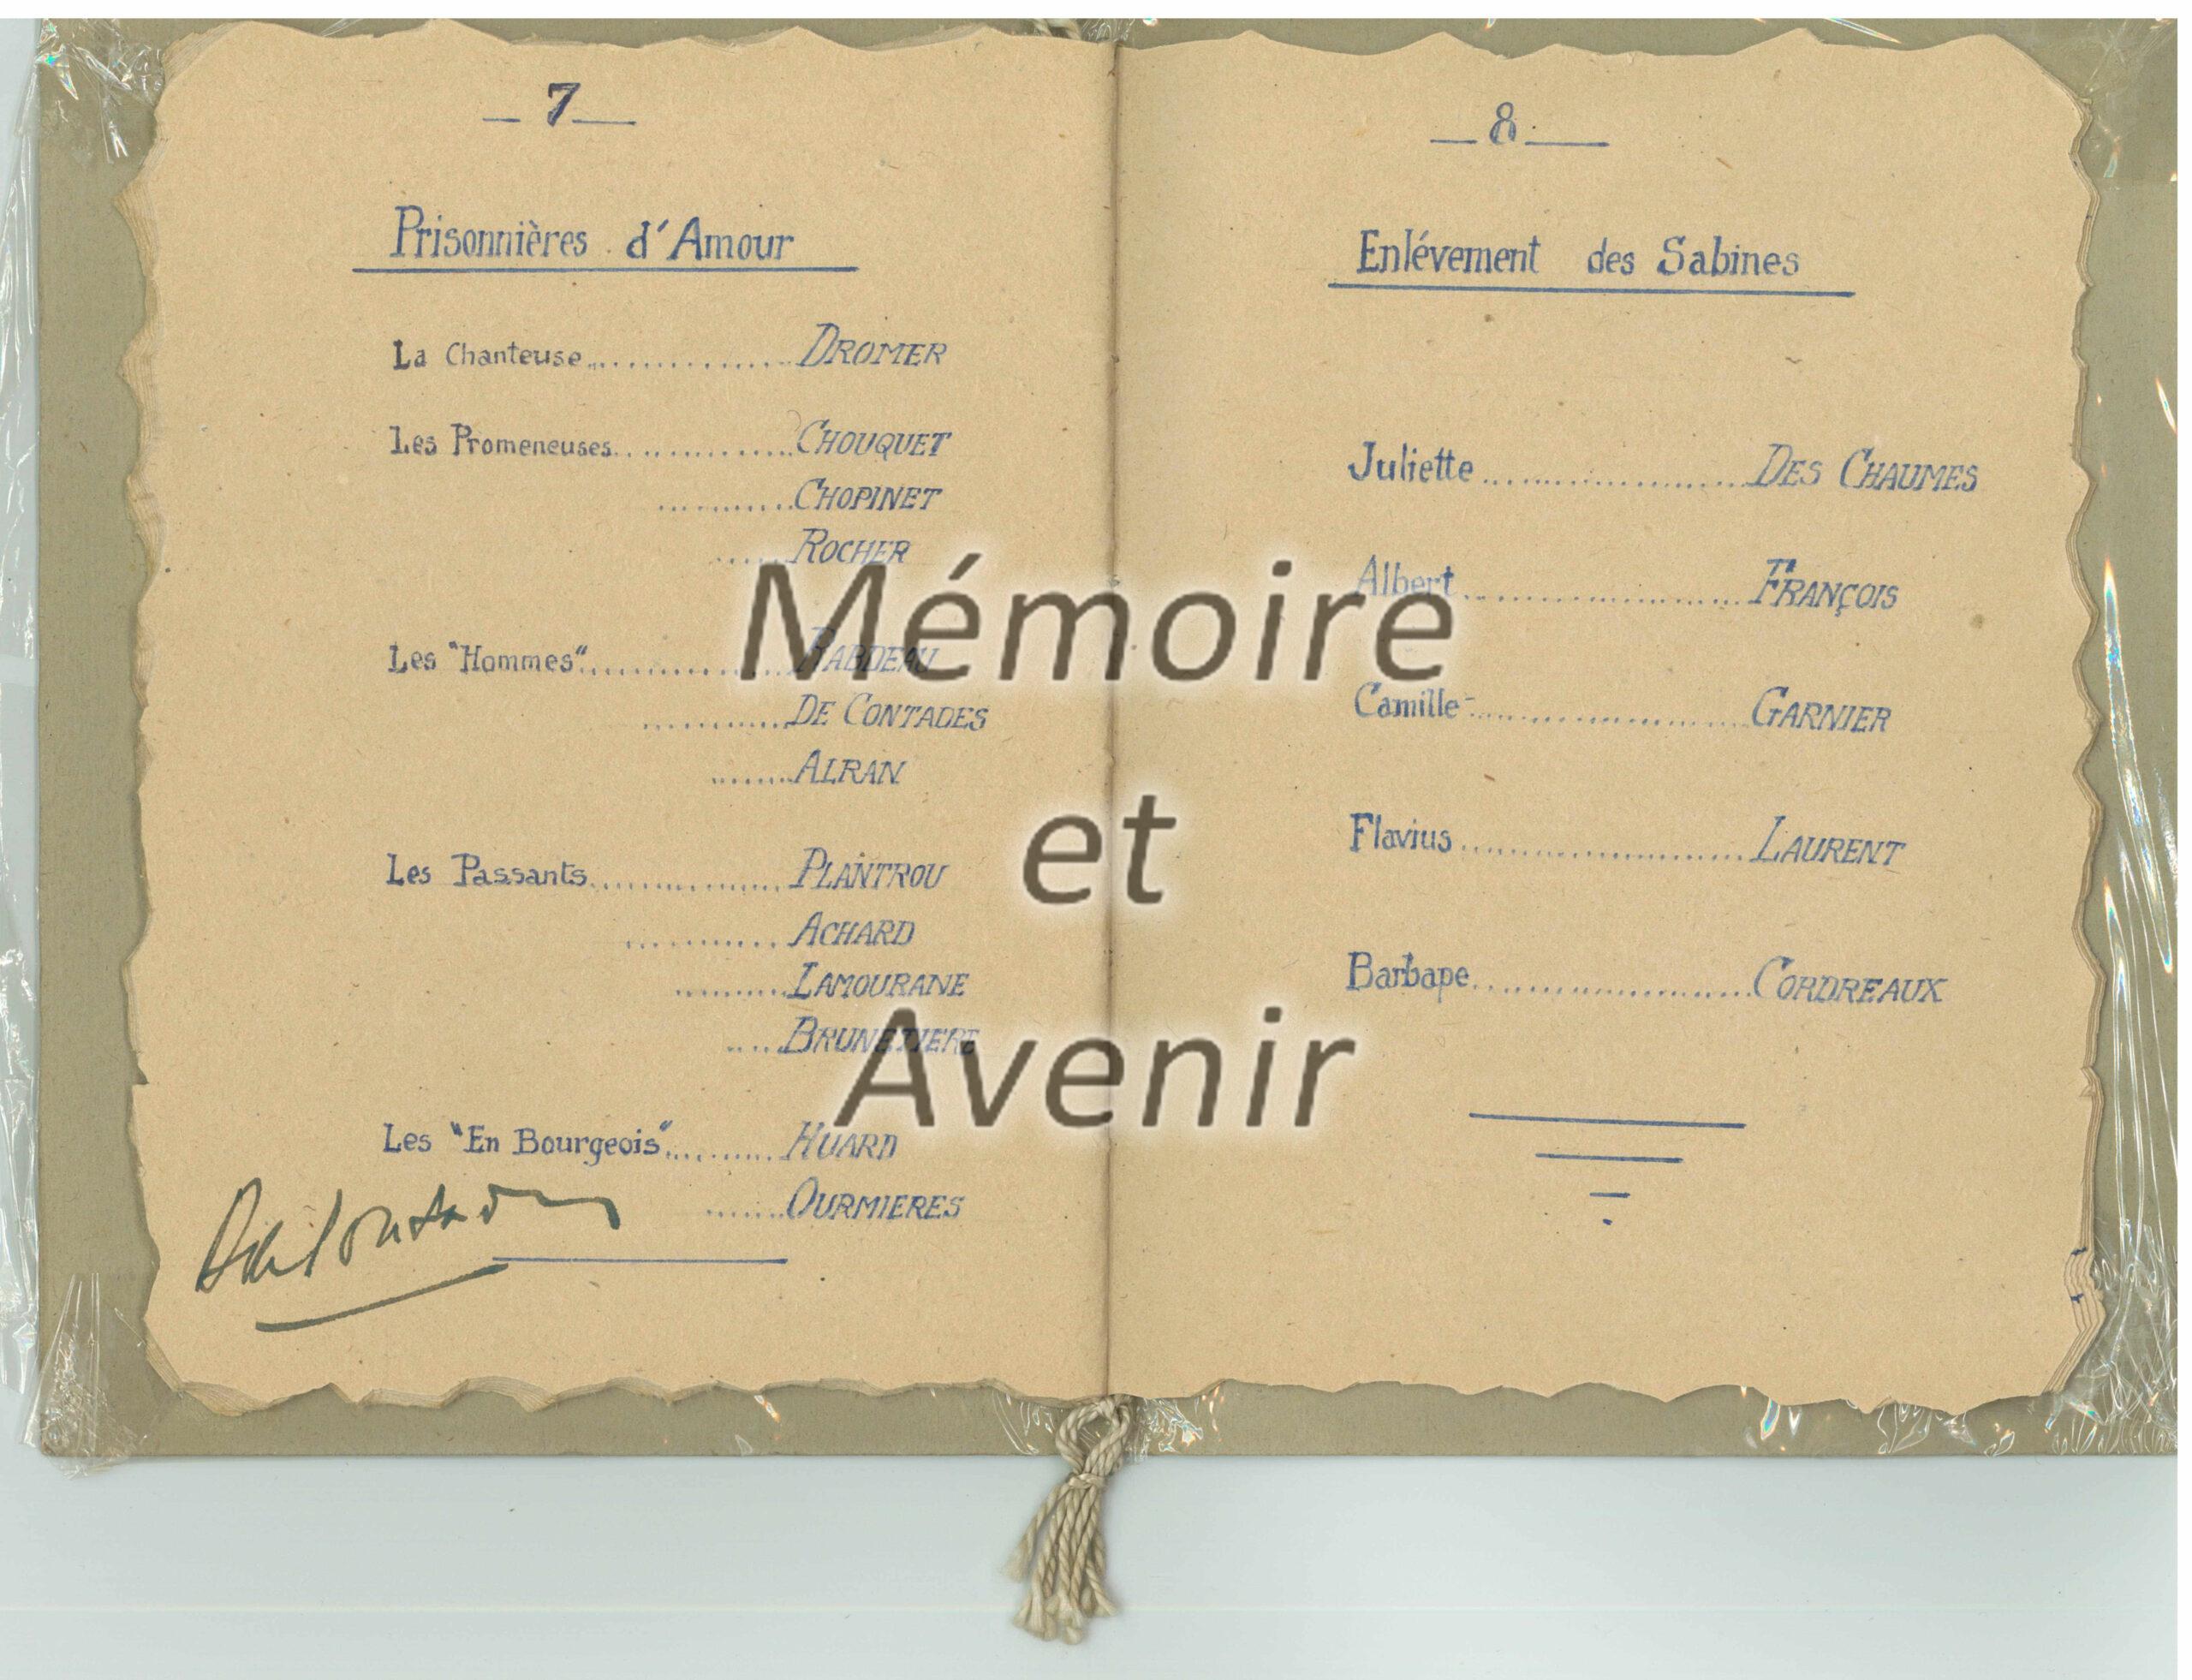 _ 7 _
Prisonnières d'Amour
La Chanteuse................DROMER
Les Promeneuses...............CHOUQUET
...........CHOPINET
......ROCHER
Les "Hommes"................RABDEAU
............DE CONTADES
........ALRAN
Les Passants................PLANTROU
............ACHARD
..........LAMOURANE
.....BRUNETIERE
Les "En Bourgeois"..........HUARD
.......OURMIERES
_ 8 _
Enlévement des Sabines
Juliette......................DES CHAUMES
Albert......................FRANÇOIS
Camille......................GARNIER
Flavius......................LAURENT
Barbape......................CORDREAUX
Mémoire
et
Avenir